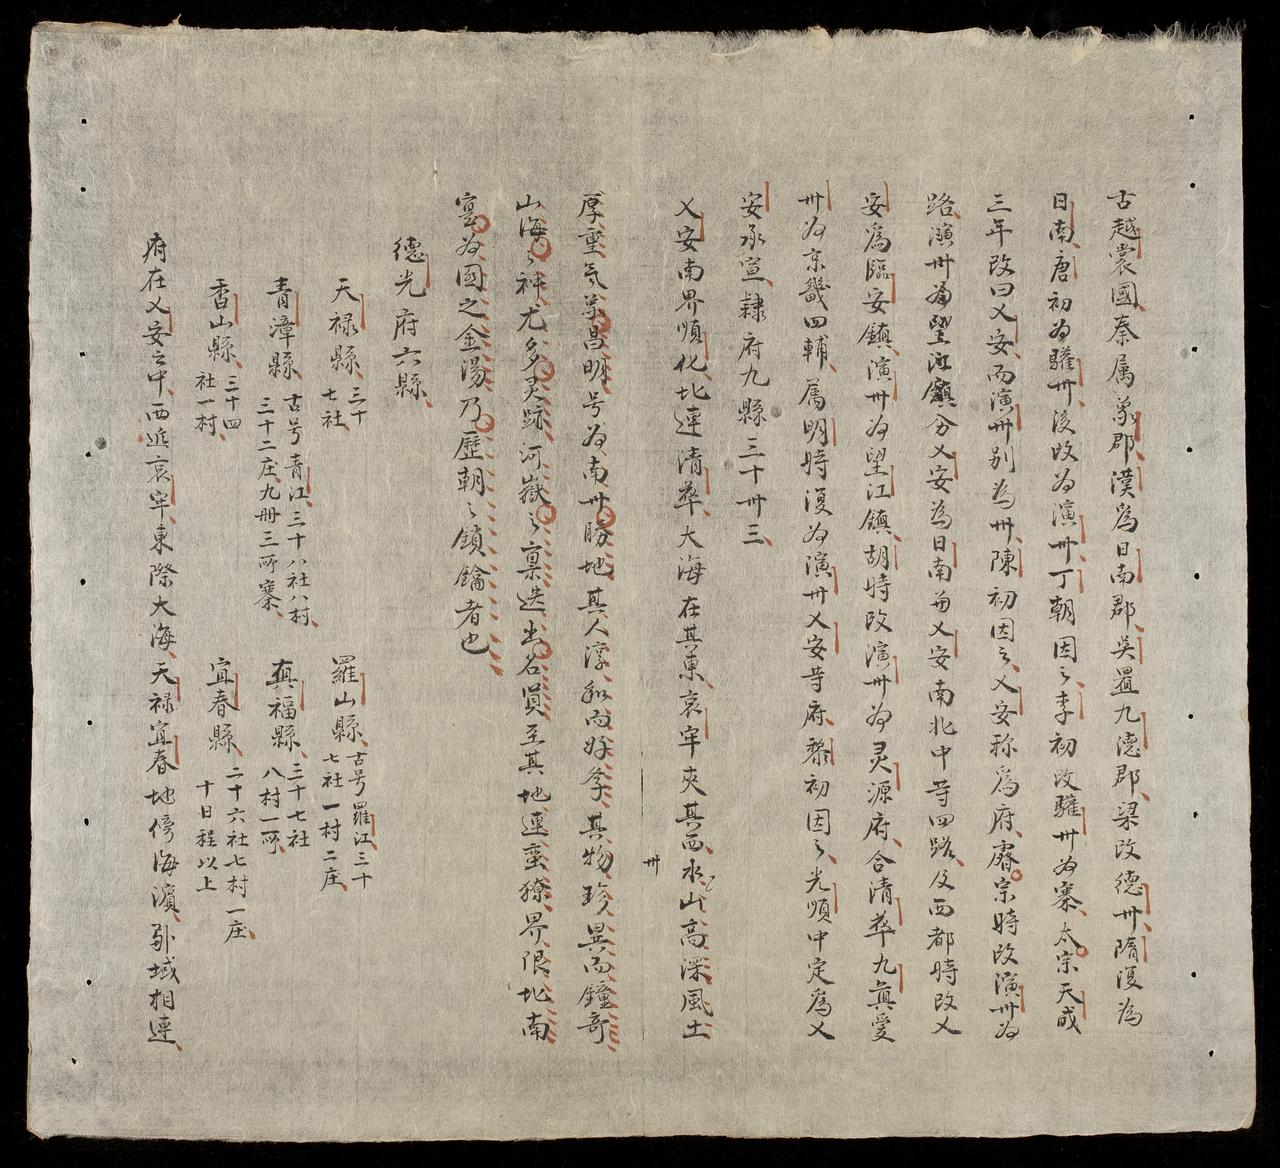 古越裳國秦属象郡漢爲日南郡吳置九德郡梁改德卅隋復為
日南唐初為驩卅後改为演卅丁朝因之李初改驩卅为寨太宗天成
三年改曰乂安而演卅别為卅陳初因之乂安称爲府睿宗時改演卅为
路演卅爲望江鎮分乂安為日南爲乂安南北中等四路及西都時改乂
安爲臨安鎮演卅为望江鎮胡時改演卅为灵源府合清華九真爱
卅为京畿四輔属明時復为演卅乂安等府黎初因之光順中定爲乂
安承宣隷府九縣三十卅三
乂安南界順化北連清華大海在其東哀牢夾其西水山高深風土
卅
厚重気象昌明号为南卅勝地其人淳和而好李其物珍異而鐘奇
山海之神尤多灵跡河嶽之稟迭出名賢至其地連蛮獠界限北南
寔为國之金湯乃歷朝之鎖鑰者也
德光府六縣
天禄縣 三十七社
羅山縣 古号羅江三十七社一村二庄
青漳縣 古号青江三十八社八村三十二庄九册三所寨
真福縣 三十七社八村一所
香山縣 三十四社一村
宜春縣 二十六社七村一庄十日程以上
府在乂安之中西近哀牢東際大海天禄宜春地傍海濱 域相連